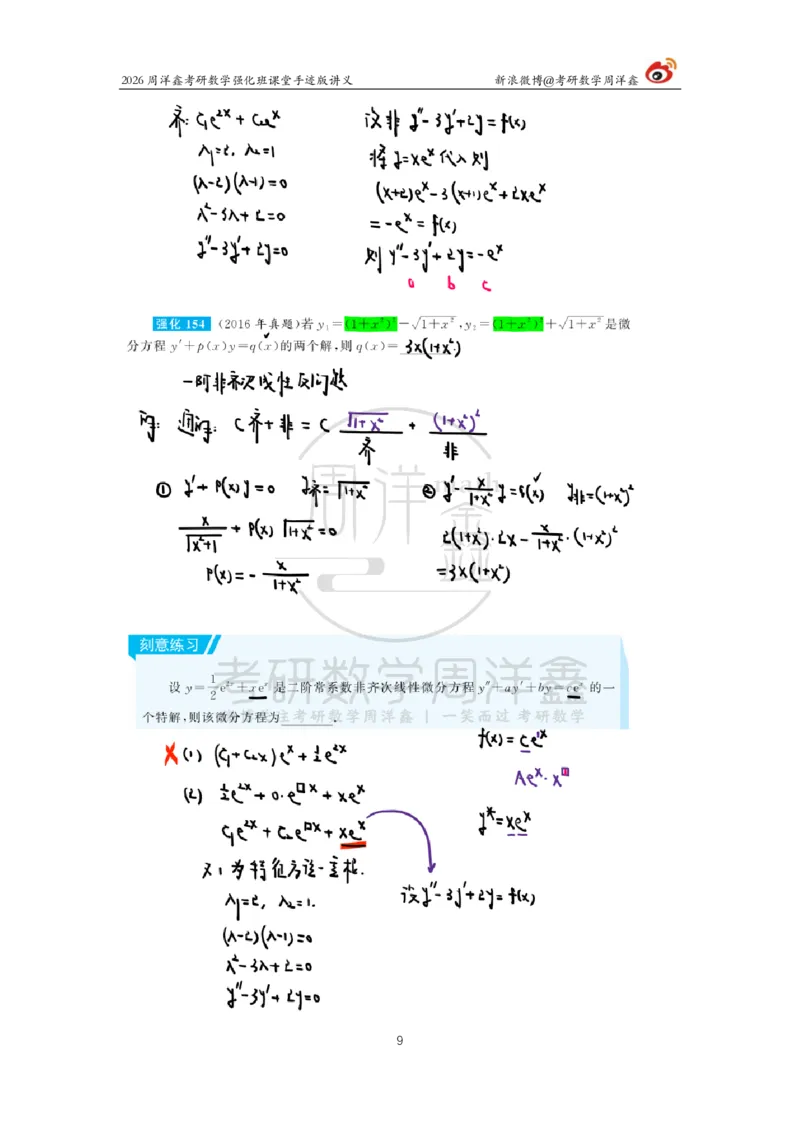 2026周洋鑫考研数学强化班课堂手迹版讲义 新浪微博@考研数学周洋鑫
齐: C₁e^{2x} + C₂e^x
λ₁=2, λ₂=1
(λ-2)(λ-1)=0
λ²-3λ+2=0
y''-3y'+2y=0
设非 y''-3y'+2y=f(x)
将 y=xe^x 代入则
(x+2)e^x-3(x+1)e^x+2xe^x
=-e^x=f(x)
则 y''-3y'+2y=-e^x
a b c
强化 154 (2016年真题)若y₁=(1+x²)²-√(1+x²),y₂=(1+x²)²+√(1+x²)是微
分方程y'+p(x)y=q(x)的两个解,则q(x)= 3x(1+x²)
一阶非齐次线性反问题
解: 通解: C齐+非 = C √(1+x²) + (1+x²)²
齐 非
① y'+P(x)y=0 y齐=√(1+x²)
x/√(x²+1) + P(x)√(1+x²)=0
P(x)=-x/(1+x²)
② y'-x/(1+x²)y=q(x) y非=(1+x²)²
2(1+x²)·2x-x/(1+x²)·(1+x²)²
=3x(1+x²)
周洋鑫
math
考研数学周洋鑫
刻意练习
设y=1/2e^{2x}+xe^x是二阶常系数非齐次线性微分方程y''+ay'+by=ce^x的一
个特解,则该微分方程为______.
考研数学周洋鑫 | 一笑而过 考研数学
✗(1) (C₁+C₂x)e^x+1/2e^{2x}
(2) 1/2e^{2x}+0·e^{□x}+xe^x
C₁e^{2x}+C₂e^{□x}+xe^x
又1为特征方程一重根.
λ₁=2, λ₂=1.
(λ-2)(λ-1)=0
λ²-3λ+2=0
y''-3y'+2y=0
f(x)=Ce^x
Ae^x·x^□
y*=xe^x
设y''-3y'+2y=f(x)
9